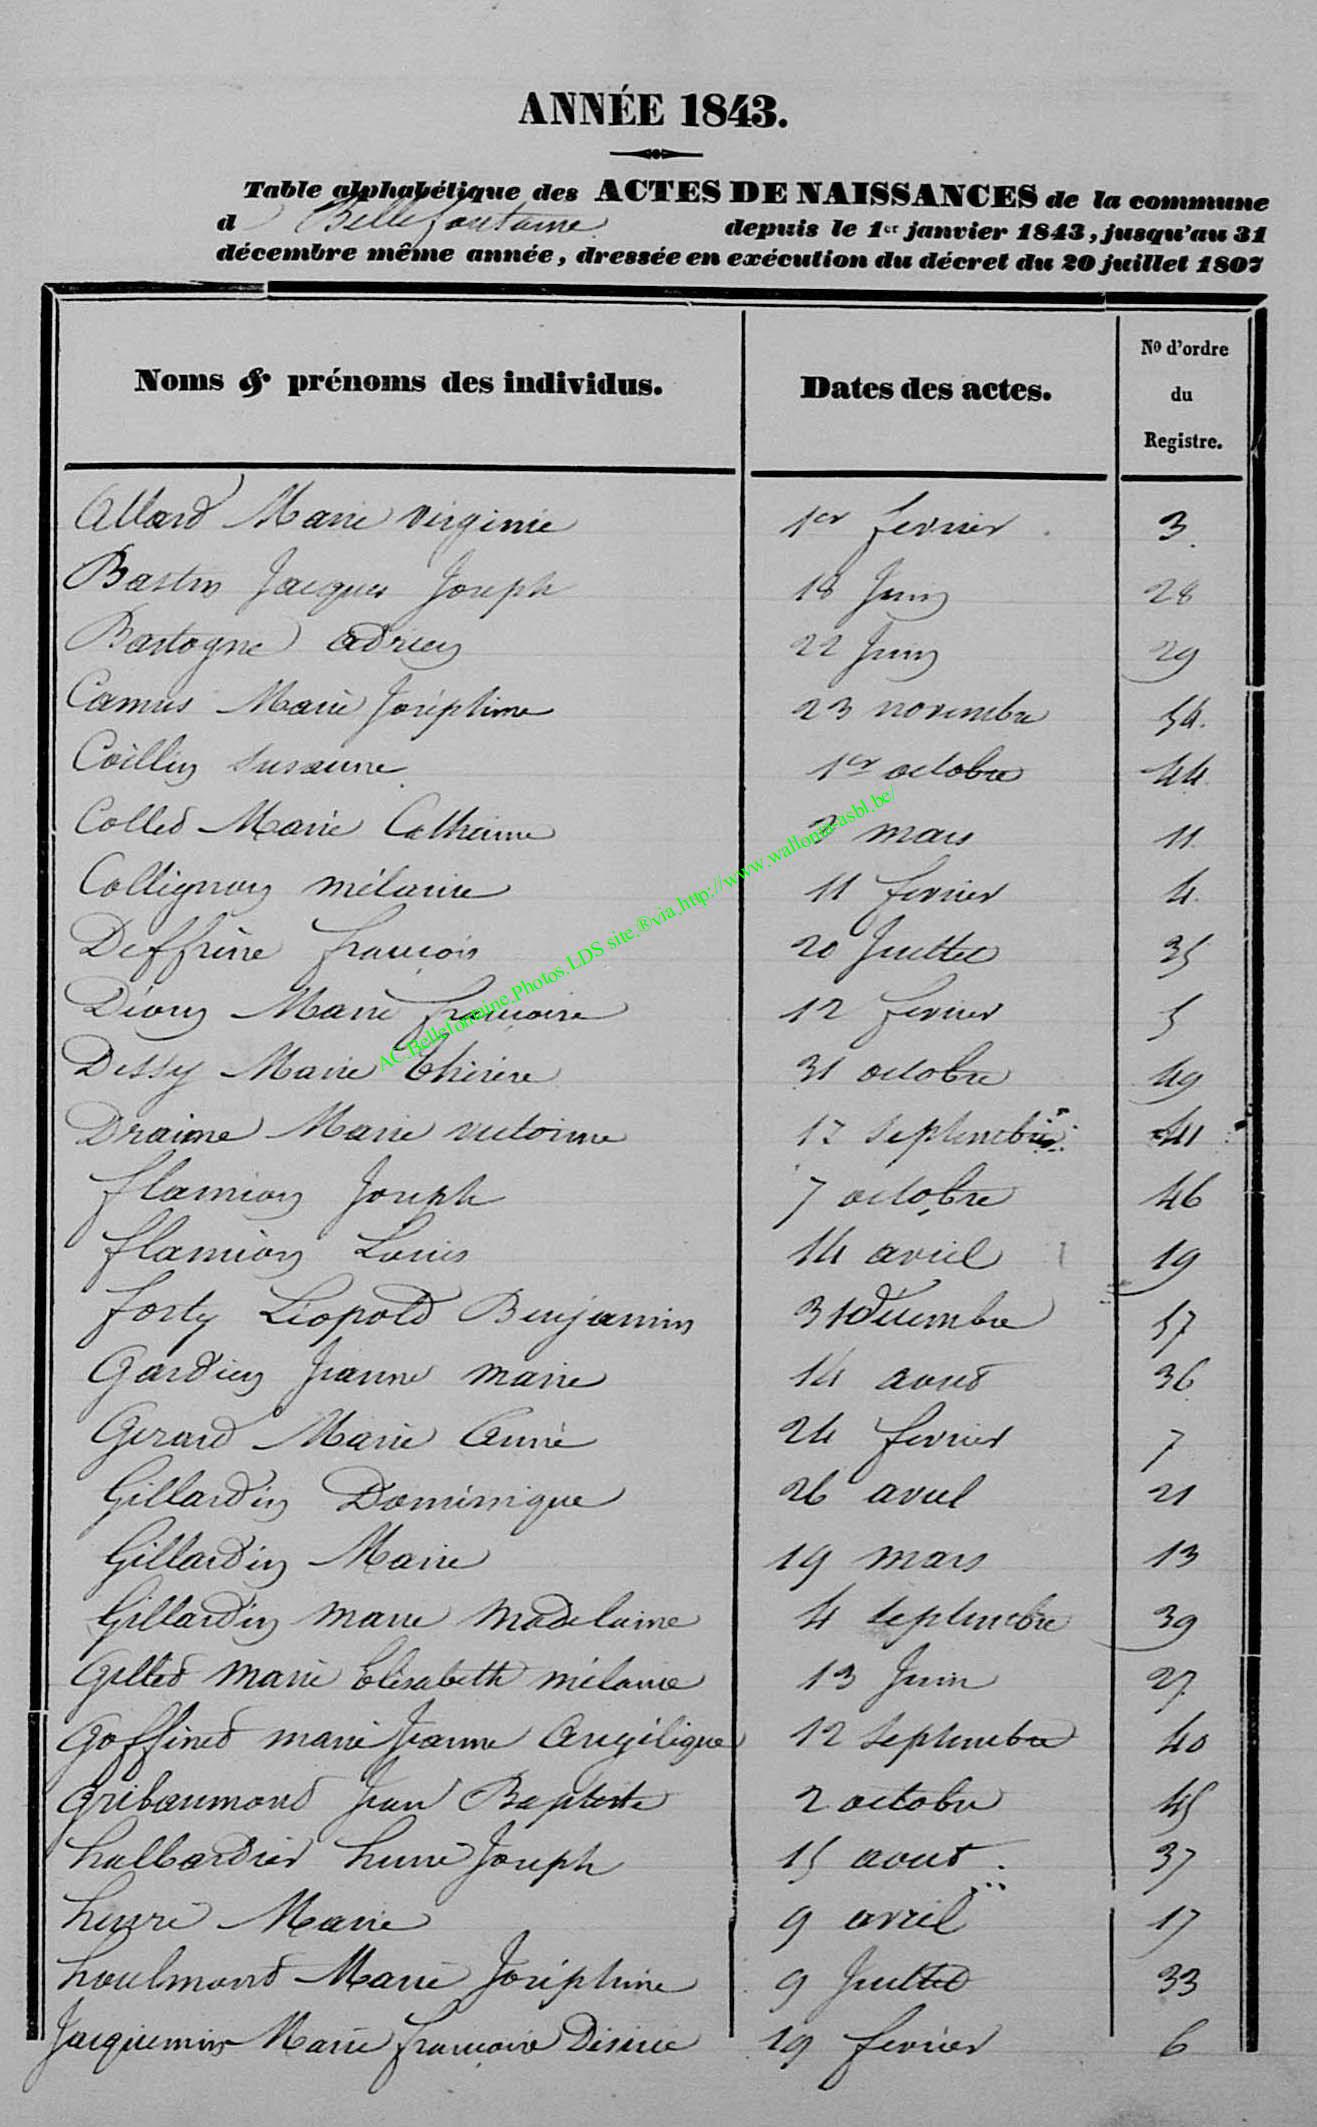 ANNÉE 1843.
Table alphabétique des ACTES DE NAISSANCES de la commune
d Bellefontaine depuis le 1er janvier 1843, jusqu'au 31
décembre même année, dressée en exécution du décret du 20 juillet 1807
Noms & prénoms des individus. Dates des actes. No d'ordre du Registre.
Allard Marie Virginie 1er fevrier 3
Bastin Jacques Joseph 18 Juin 28
Bastogne adrien 22 Juin 29
Camus Marie Joséphine 23 novembre 54
Coillin Susanne 1er octobre 44
Collet Marie Catherine 3 mars 11
Collignon mélanie 11 fevrier 4
Deffrène françois 20 Juillet 35
Dion Marie françoise 12 fevrier 5
Dessy Marie thérèse 31 octobre 49
Draime Marie victoirine 12 septembre 41
flamion Joseph 7 octobre 46
flamion Louis 14 avril 19
forty Léopold Benjamin 31 Décembre 57
Gardien Jeanne marie 14 aout 36
Gerard Marie Anne 24 fevrier 7
Gillardin Dominique 26 avril 21
Gillardin Marie 19 mars 13
Gillardin marie madelaine 4 septembre 39
Gillet marie Elisabeth mélanie 13 Juin 27
Goffinet marie Jeanne Angélique 12 Septembre 40
Gribaumont Jean Baptiste 2 octobre 45
halbardier henri Joseph 15 aout 37
henri Marie 9 avril 17
houlmont Marie Joséphine 9 Juillet 33
Jacquemin Marie françoise Désirée 19 fevrier 6
AC.Bellefontaine.Photos.LDS site.®via.http://www.wallonia-asbl.be/